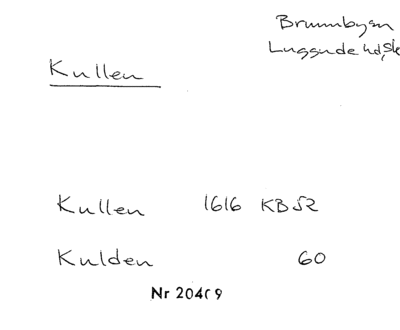 Brunnbyan
Luggude hd, Sk
Kullen
Kullen 1616 KB 52
Kulden 60
Nr 20409